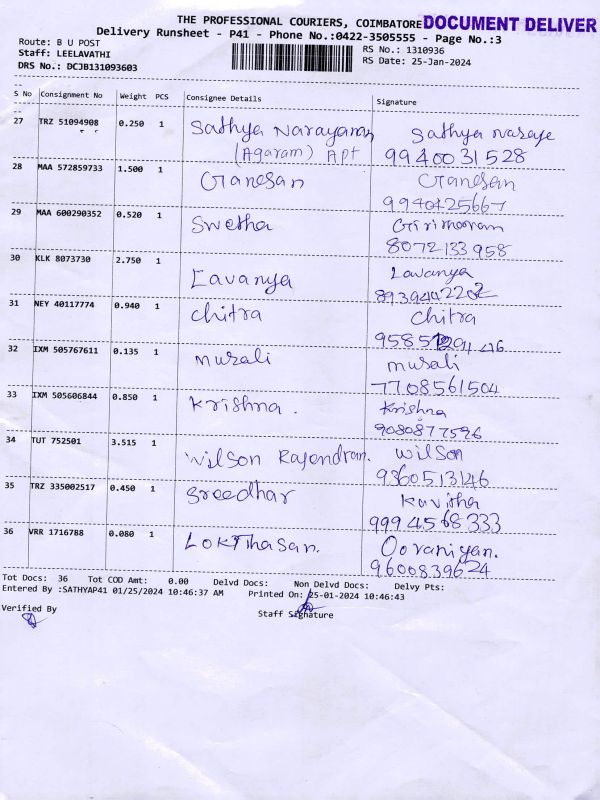 THE PROFESSIONAL COURIERS, COIMBATORE DOCUMENT DELIVER
Delivery Runsheet - P41 - Phone No.:0422-3505555 - Page No.:3
Route: B U POST RS No.: 1310936
Staff: LEELAVATHI RS Date: 25-Jan-2024
DRS No.: DCJB131093603
S No Consignment No Weight PCS Consignee Details Signature
27 TRZ 51094908 0.250 1 Sathya Narayanan Sathya
(Agaram) Apt 9940031528
28 MAA 572859733 1.500 1 Ganesan Ganesan
29 MAA 600290352 0.520 1 Swetha
8072133958
30 KLK 8073730 2.750 1 Lavanya Lavanya
31 NEY 40117774 0.940 1 Chitra Chitra
32 IXM 505767611 0.135 1 Murali Murali
7708561504
33 IXM 505606844 0.850 1 Krishna. Krishna
9080877596
34 TUT 752501 3.515 1 Wilson Rajendran. Wilson
9360513146
35 TRZ 335002517 0.450 1 Sreedhar Kavitha
9994568333
36 VRR 1716788 0.080 1
9600839624
Tot Docs: 36 Tot COD Amt: 0.00 Delvd Docs: Non Delvd Docs: Delvy Pts:
Entered By :SATHYAP41 01/25/2024 10:46:37 AM Printed On: 25-01-2024 10:46:43
Verified By Staff Signature